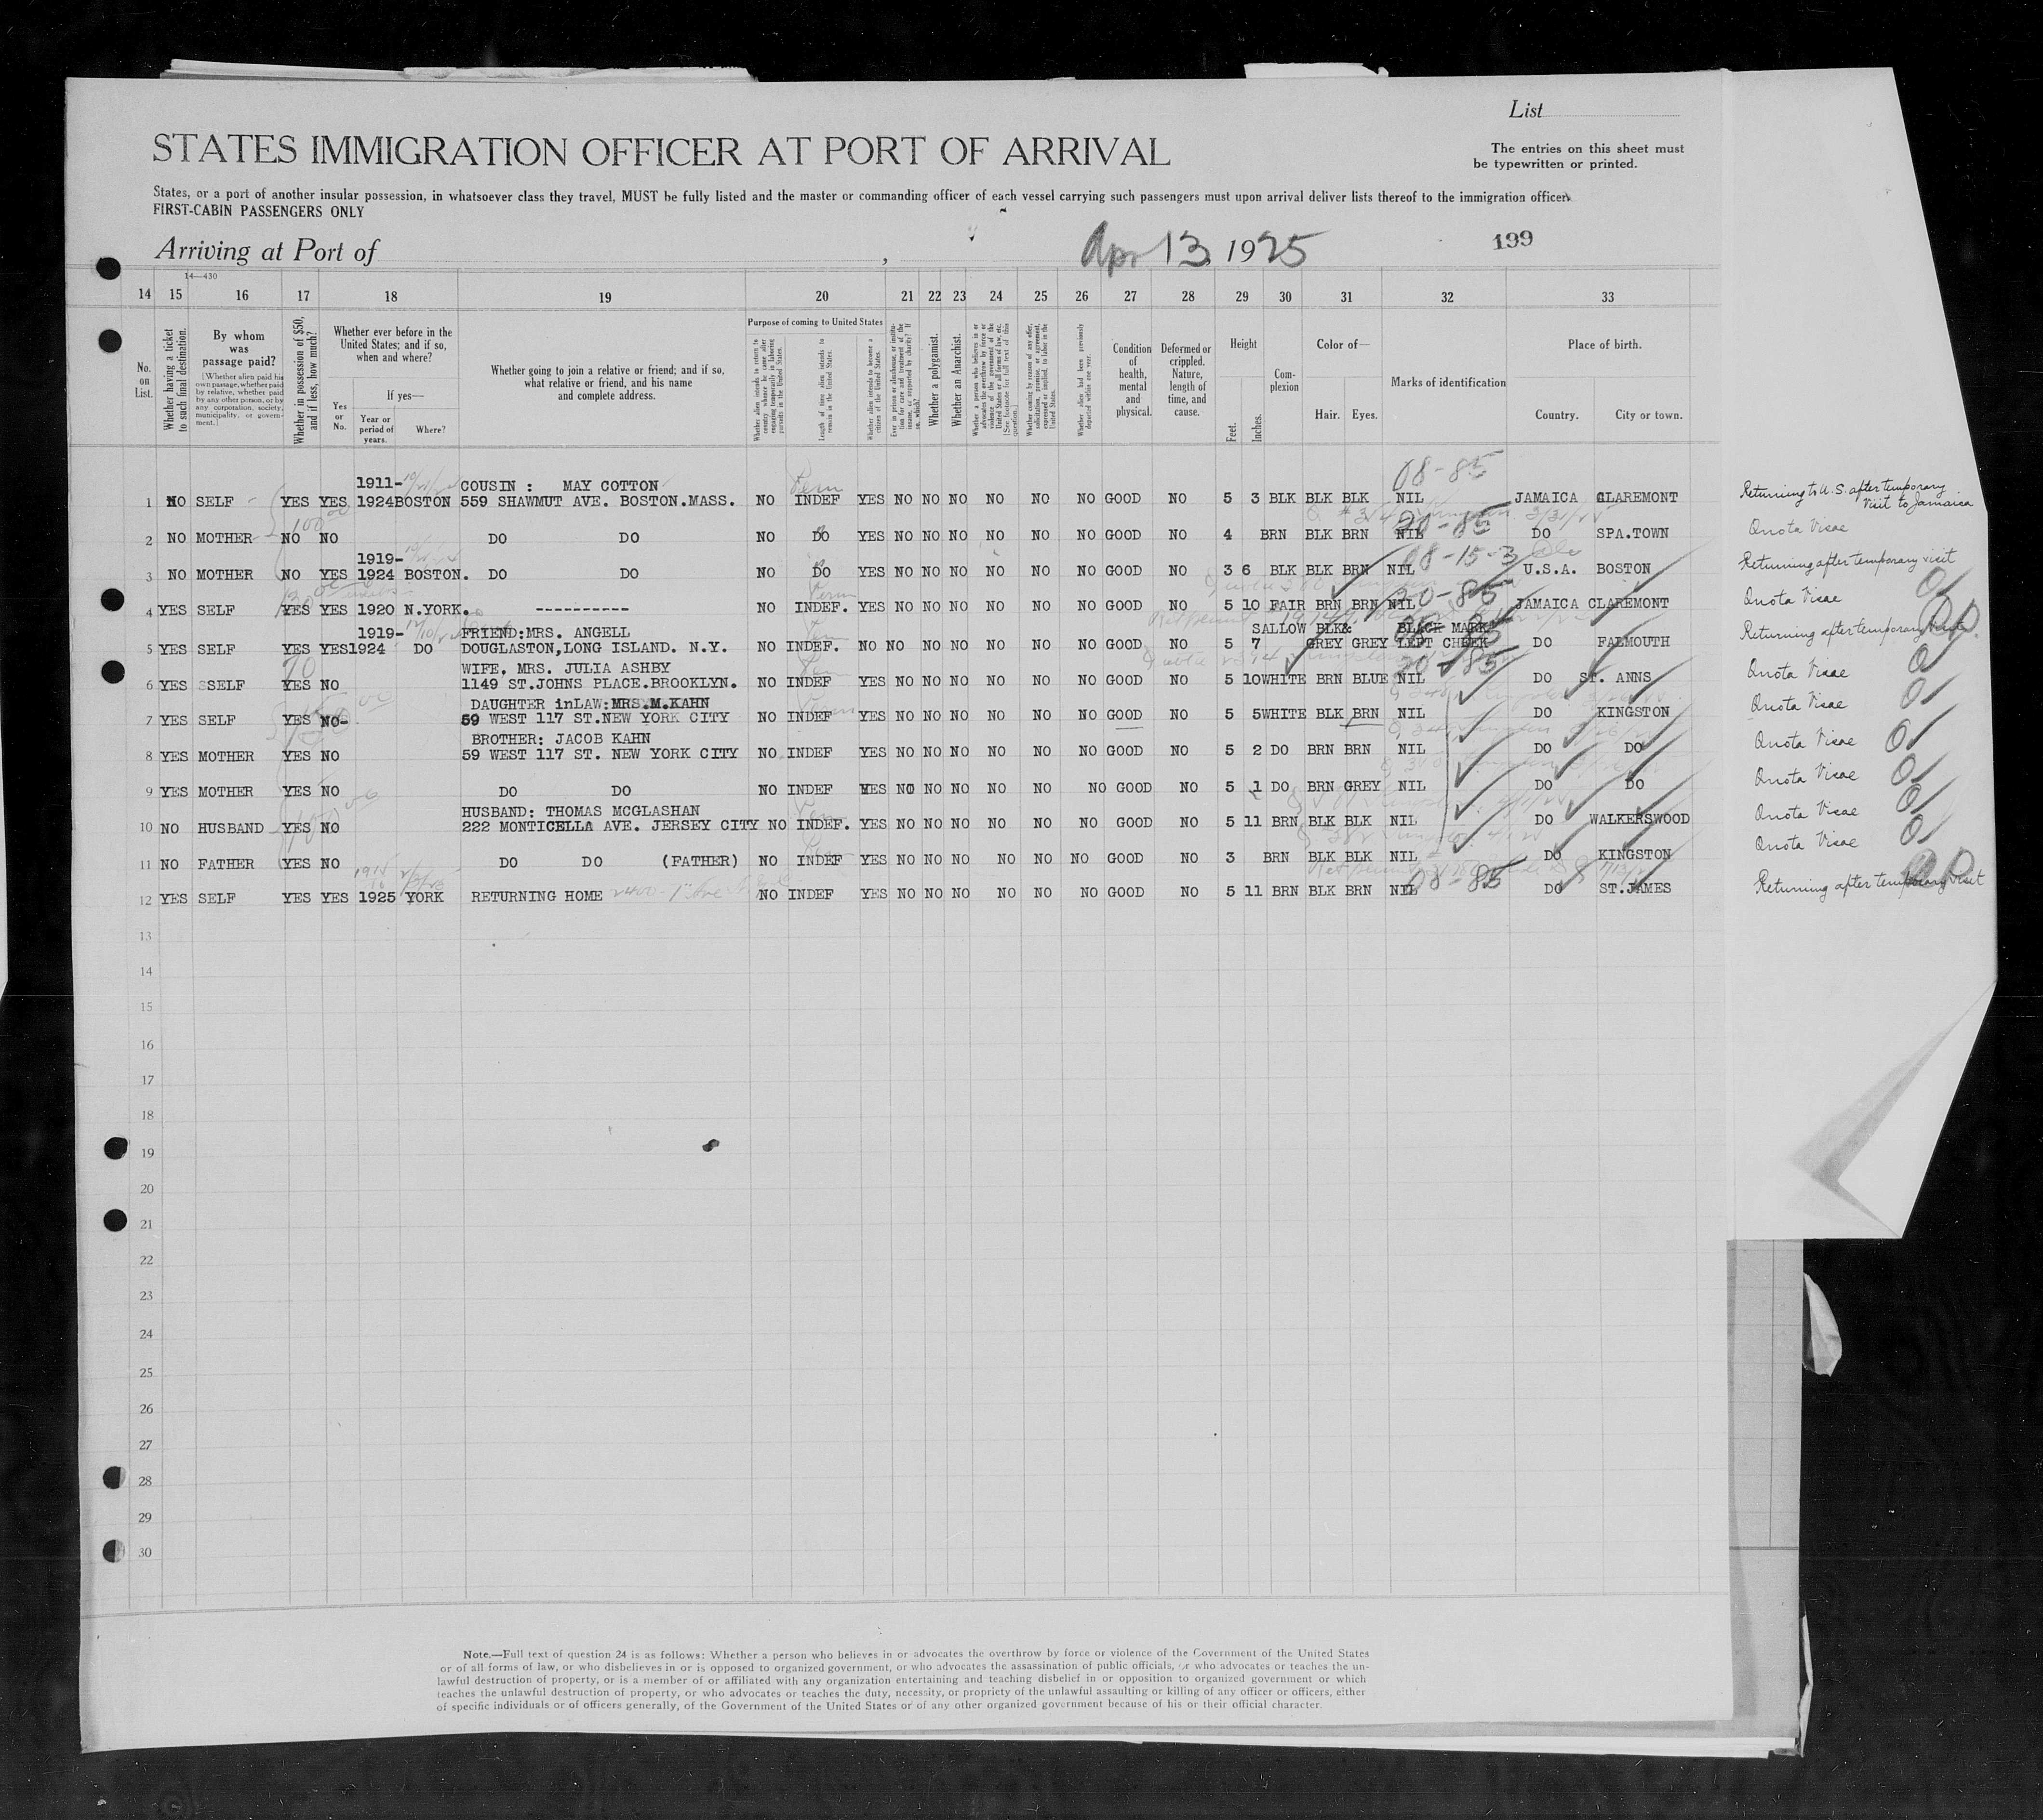 List
STATES IMMIGRATION OFFICER AT PORT OF ARRIVAL
The entries on this sheet must
be typewritten or printed.
States, or a port of another insular possession, in whatsoever class they travel, MUST be fully listed and the master or commanding officer of each vessel carrying such passengers must upon arrival deliver lists thereof to the immigration officer.
FIRST-CABIN PASSENGERS ONLY
Arriving at Port of , Apr 13, 1925 199
14—430
14 15 16 17 18 19 20 21 22 23 24 25 26 27 28 29 30 31 32 33
No. on List.
Whether having a ticket to such final destination.
By whom was passage paid?
[Whether alien paid his own passage, whether paid by relative, whether paid by any other person, or by any corporation, society, municipality, or government.]
Whether in possession of $50, and if less, how much?
Whether ever before in the United States; and if so, when and where?
Yes or No.
If yes—
Year or period of years.
Where?
Whether going to join a relative or friend; and if so, what relative or friend, and his name and complete address.
Purpose of coming to United States
Whether alien intends to return to country whence he came after engaging temporarily in laboring pursuits in the United States.
Length of time alien intends to remain in the United States.
Whether alien intends to become a citizen of the United States.
Ever in prison or almshouse, or institution for care and treatment of the insane, or supported by charity? If so, which?
Whether a polygamist.
Whether an Anarchist.
Whether a person who believes in or advocates the overthrow by force or violence of the Government of the United States or all forms of law, etc. [See footnote for full text of this question.]
Whether coming by reason of any offer, solicitation, promise, or agreement, expressed or implied, to labor in the United States.
Whether alien had been previously deported within one year.
Condition of health, mental and physical.
Deformed or crippled. Nature, length of time, and cause.
Height
Feet.
Inches.
Complexion
Color of—
Hair. Eyes.
Marks of identification
Place of birth.
Country. City or town.
08-85
1911- COUSIN : MAY COTTON
1 NO SELF YES YES 1924 BOSTON 559 SHAWMUT AVE. BOSTON.MASS. NO INDEF YES NO NO NO NO NO NO GOOD NO 5 3 BLK BLK BLK NIL JAMAICA CLAREMONT Returning to U.S. after temporary Visit to Jamaica
20-85
2 NO MOTHER NO NO DO DO NO DO YES NO NO NO NO NO NO GOOD NO 4 BRN BLK BRN NIL DO SPA.TOWN Quota Visae
1919- 08-15-3
3 NO MOTHER NO YES 1924 BOSTON. DO DO NO DO YES NO NO NO NO NO NO GOOD NO 3 6 BLK BLK BRN NIL U.S.A. BOSTON Returning after temporary visit
20-85
4 YES SELF YES YES 1920 N.YORK. ---------- NO INDEF. YES NO NO NO NO NO NO GOOD NO 5 10 FAIR BRN BRN NIL JAMAICA CLAREMONT Quota Visae
1919- FRIEND:MRS. ANGELL SALLOW BLK& BLACK MARK
5 YES SELF YES YES 1924 DO DOUGLASTON,LONG ISLAND. N.Y. NO INDEF. NO NO NO NO NO NO NO GOOD NO 5 7 GREY GREY LEFT CHEEK DO FALMOUTH Returning after temporary visit
WIFE. MRS. JULIA ASHBY 20-85
6 YES SSELF YES NO 1149 ST.JOHNS PLACE.BROOKLYN. NO INDEF YES NO NO NO NO NO NO GOOD NO 5 10 WHITE BRN BLUE NIL DO ST. ANNS Quota Visae
DAUGHTER inLAW:MRS.M.KAHN
7 YES SELF YES NO- 59 WEST 117 ST.NEW YORK CITY NO INDEF YES NO NO NO NO NO NO GOOD NO 5 5 WHITE BLK BRN NIL DO KINGSTON Quota Visae
BROTHER: JACOB KAHN
8 YES MOTHER YES NO 59 WEST 117 ST. NEW YORK CITY NO INDEF YES NO NO NO NO NO NO GOOD NO 5 2 DO BRN BRN NIL DO DO Quota Visae
9 YES MOTHER YES NO DO DO NO INDEF YES NO NO NO NO NO NO GOOD NO 5 1 DO BRN GREY NIL DO DO Quota Visae
HUSBAND: THOMAS MCGLASHAN
10 NO HUSBAND YES NO 222 MONTICELLA AVE. JERSEY CITY NO INDEF. YES NO NO NO NO NO NO GOOD NO 5 11 BRN BLK BLK NIL DO WALKERSWOOD Quota Visae
11 NO FATHER YES NO DO DO (FATHER) NO INDEF YES NO NO NO NO NO NO GOOD NO 3 BRN BLK BLK NIL DO KINGSTON Quota Visae
08-85
12 YES SELF YES YES 1925 YORK RETURNING HOME NO INDEF YES NO NO NO NO NO NO GOOD NO 5 11 BRN BLK BRN NIL DO ST.JAMES Returning after temporary visit
13
14
15
16
17
18
19
20
21
22
23
24
25
26
27
28
29
30
Note.—Full text of question 24 is as follows: Whether a person who believes in or advocates the overthrow by force or violence of the Government of the United States
or of all forms of law, or who disbelieves in or is opposed to organized government, or who advocates the assassination of public officials, or who advocates or teaches the un-
lawful destruction of property, or is a member of or affiliated with any organization entertaining and teaching disbelief in or opposition to organized government or which
teaches the unlawful destruction of property, or who advocates or teaches the duty, necessity, or propriety of the unlawful assaulting or killing of any officer or officers, either
of specific individuals or of officers generally, of the Government of the United States or of any other organized government because of his or their official character.